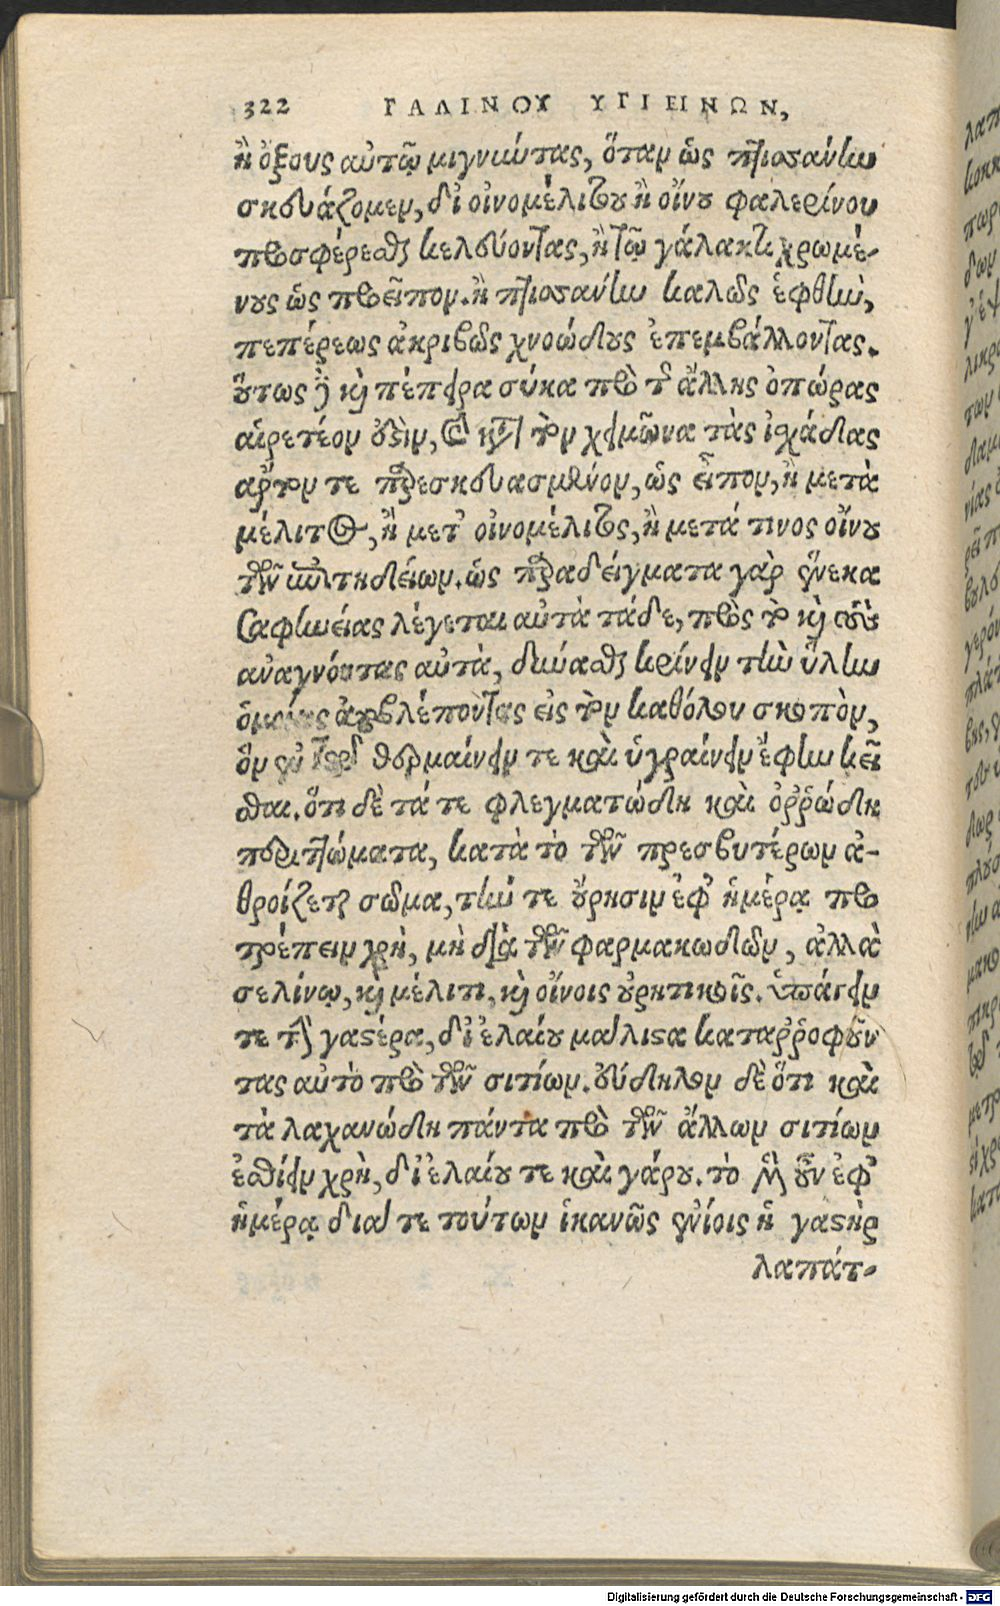 322 ΓΑΛΙΝΟΥ ΥΓΙΕΙΝΩΝ,
ἢ ὄξους αὐτῷ μιγνύντας, ὅταν ὡς πτισσάνην
σκευάζομεν, δι' οἰνομέλιτος ἢ οἴνου φαλερίνου
προσφέρεσθαι κελεύοντας, ἢ τῷ γάλακτι χρωμέ-
νους ὡς προεῖπον. ἢ πτισσάνην καλῶς ἑφθὴν,
πεπέρεως ἀκριβῶς χνοώδους ἐπεμβάλλοντας.
οὕτως δὲ καὶ πέπειρα σύκα πρὸ τῆς ἄλλης ὀπώρας
αἱρετέον οὖσιν, καὶ κατὰ τὸν χειμῶνα τὰς ἰσχάδας
ἄρτον τε παρεσκευασμένον, ὡς εἶπον, ἢ μετὰ
μέλιτος, ἢ μετ' οἰνομέλιτος, ἢ μετά τινος οἴνου
τῶν ἐπιτηδείων. ὡς παραδείγματα γὰρ ἕνεκα
σαφηνείας λέγεται αὐτὰ τάδε, πρὸς τὸ καὶ τοὺς
ἀναγνόντας αὐτὰ, δύνασθαι κρίνειν τὴν ὕλην
ὁμοίως ἀποβλέποντας εἰς τὸν καθόλου σκοπὸν,
ὃν ἐν τῷ θερμαίνειν τε καὶ ὑγραίνειν ἔφην κεῖ
σθαι. ὅτι δὲ τά τε φλεγματώδη καὶ ὀῤῥώδη
περιττώματα, κατὰ τὸ τῶν πρεσβυτέρων ἀ-
θροίζεται σῶμα, τήν τε οὔρησιν ἐφ' ἡμέρᾳ προ
τρέπειν χρὴ, μὴ διὰ τῶν φαρμακωδῶν, ἀλλὰ
σελίνῳ, καὶ μέλιτι, καὶ οἴνοις οὐρητικοῖς. ὑπάγειν
τε τὴν γαστέρα, δι' ἐλαίου μάλιστα καταῤῥοφοῦν
τας αὐτὸ πρὸ τῶν σιτίων. εὔδηλον δὲ ὅτι καὶ
τὰ λαχανώδη πάντα πρὸ τῶν ἄλλων σιτίων
ἐσθίειν χρὴ, δι' ἐλαίου τε καὶ γάρου. τὸ μὲν οὖν ἐφ'
ἡμέρᾳ διά τε τούτων ἱκανῶς ἐνίοις ἡ γαστὴρ
λαπάτ-
Digitalisierung gefördert durch die Deutsche Forschungsgemeinschaft - DFG